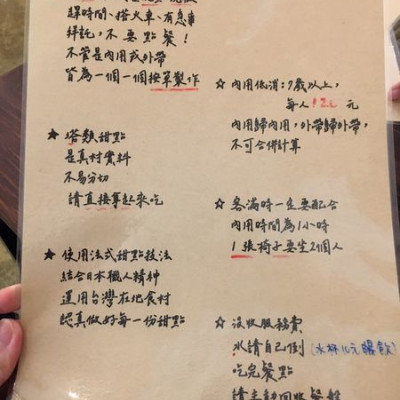 趕時間、搭火車、有急事
拜託，不要點餐！
不管是內用或外帶
皆為一個一個按單製作
★ 塔類甜點
是真材實料
不易分切
請直接拿起來吃
★ 使用法式甜點技法
結合日本職人精神
運用台灣在地食材
認真做好每一份甜點
☆ 內用低消：7歲以上，
每人120元
內用歸內用，外帶歸外帶，
不可合併計算
☆ 客滿時一定要配合
內用時間為1小時
1張椅子要坐2個人
☆ 沒收服務費
水請自己倒（水杯10元暢飲）
吃完餐點